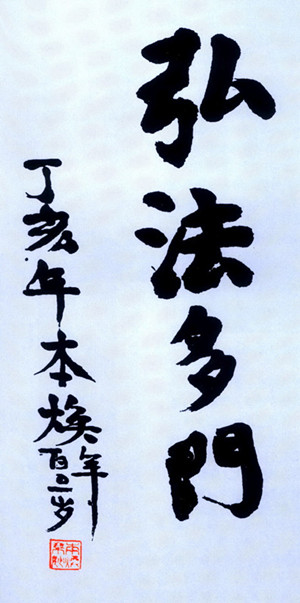 弘法多門
丁亥年本焕年百岁